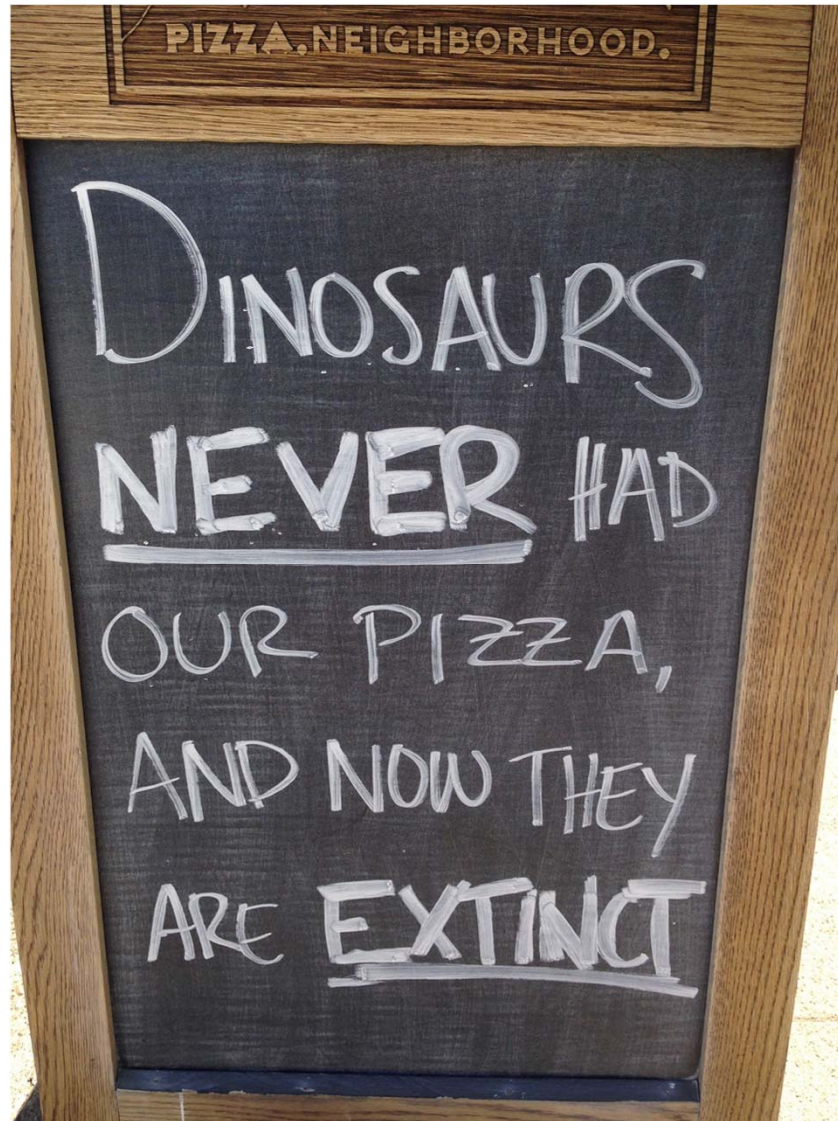 PIZZA.NEIGHBORHOOD.
DINOSAURS
NEVER HAD
OUR PIZZA,
AND NOW THEY
ARE EXTINCT